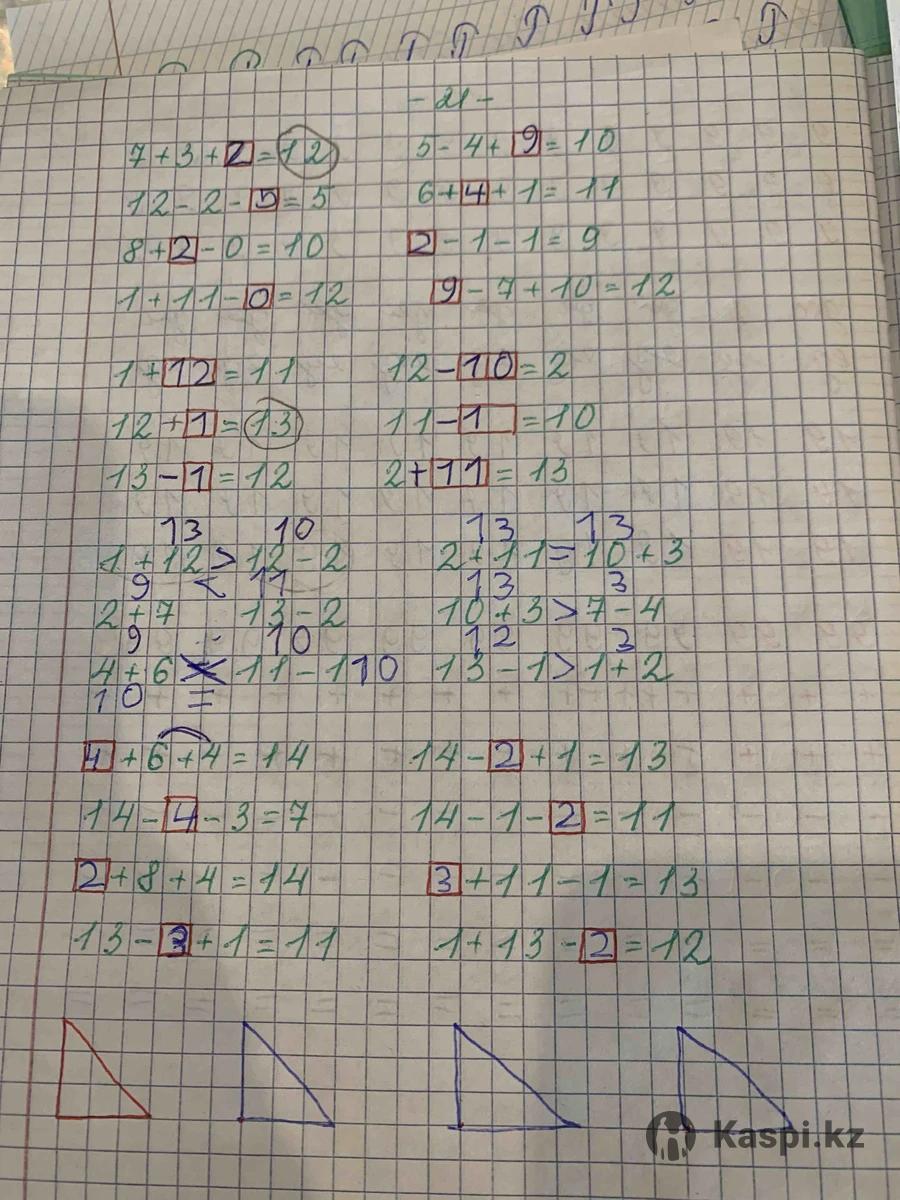 - 21 -
7 + 3 + 2 = 12 5 - 4 + 9 = 10
12 - 2 - 5 = 5 6 + 4 + 1 = 11
8 + 2 - 0 = 10 2 - 1 - 1 = 9
1 + 11 - 0 = 12 9 - 7 + 10 = 12
1 + 12 = 11 12 - 10 = 2
12 + 1 = 13 11 - 1 = 10
13 - 1 = 12 2 + 11 = 13
13 10 13 13
1 + 12 > 12 - 2 2 + 11 = 10 + 3
9 < 11 13 3
2 + 7 13 - 2 10 + 3 > 7 - 4
9 10 12 3
4 + 6 11 - 1 10 13 - 1 > 1 + 2
10 =
4 + 6 + 4 = 14 14 - 2 + 1 = 13
14 - 4 - 3 = 7 14 - 1 - 2 = 11
2 + 8 + 4 = 14 3 + 11 - 1 = 13
13 - 3 + 1 = 11 1 + 13 - 2 = 12
Kaspi.kz